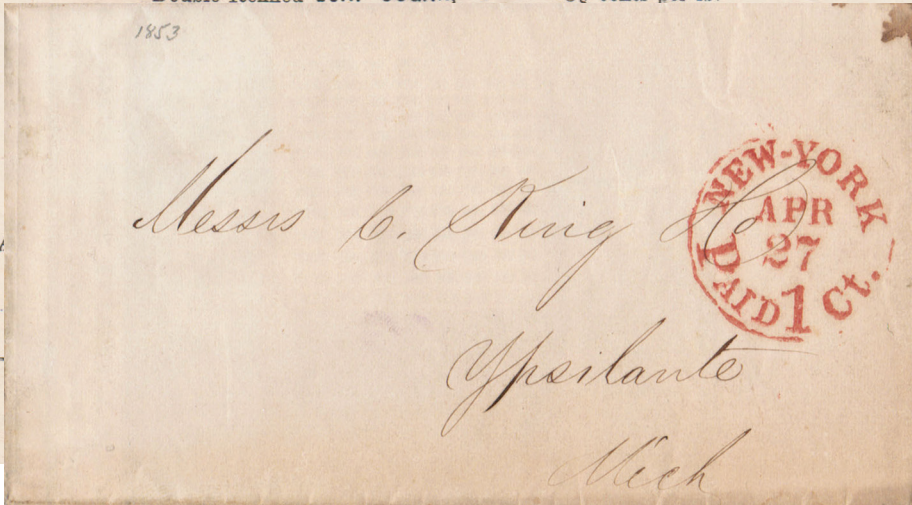 1853
Messrs C. King
NEW-YORK
APR
27
PAID 1 Ct.
Ypsilante
Mich